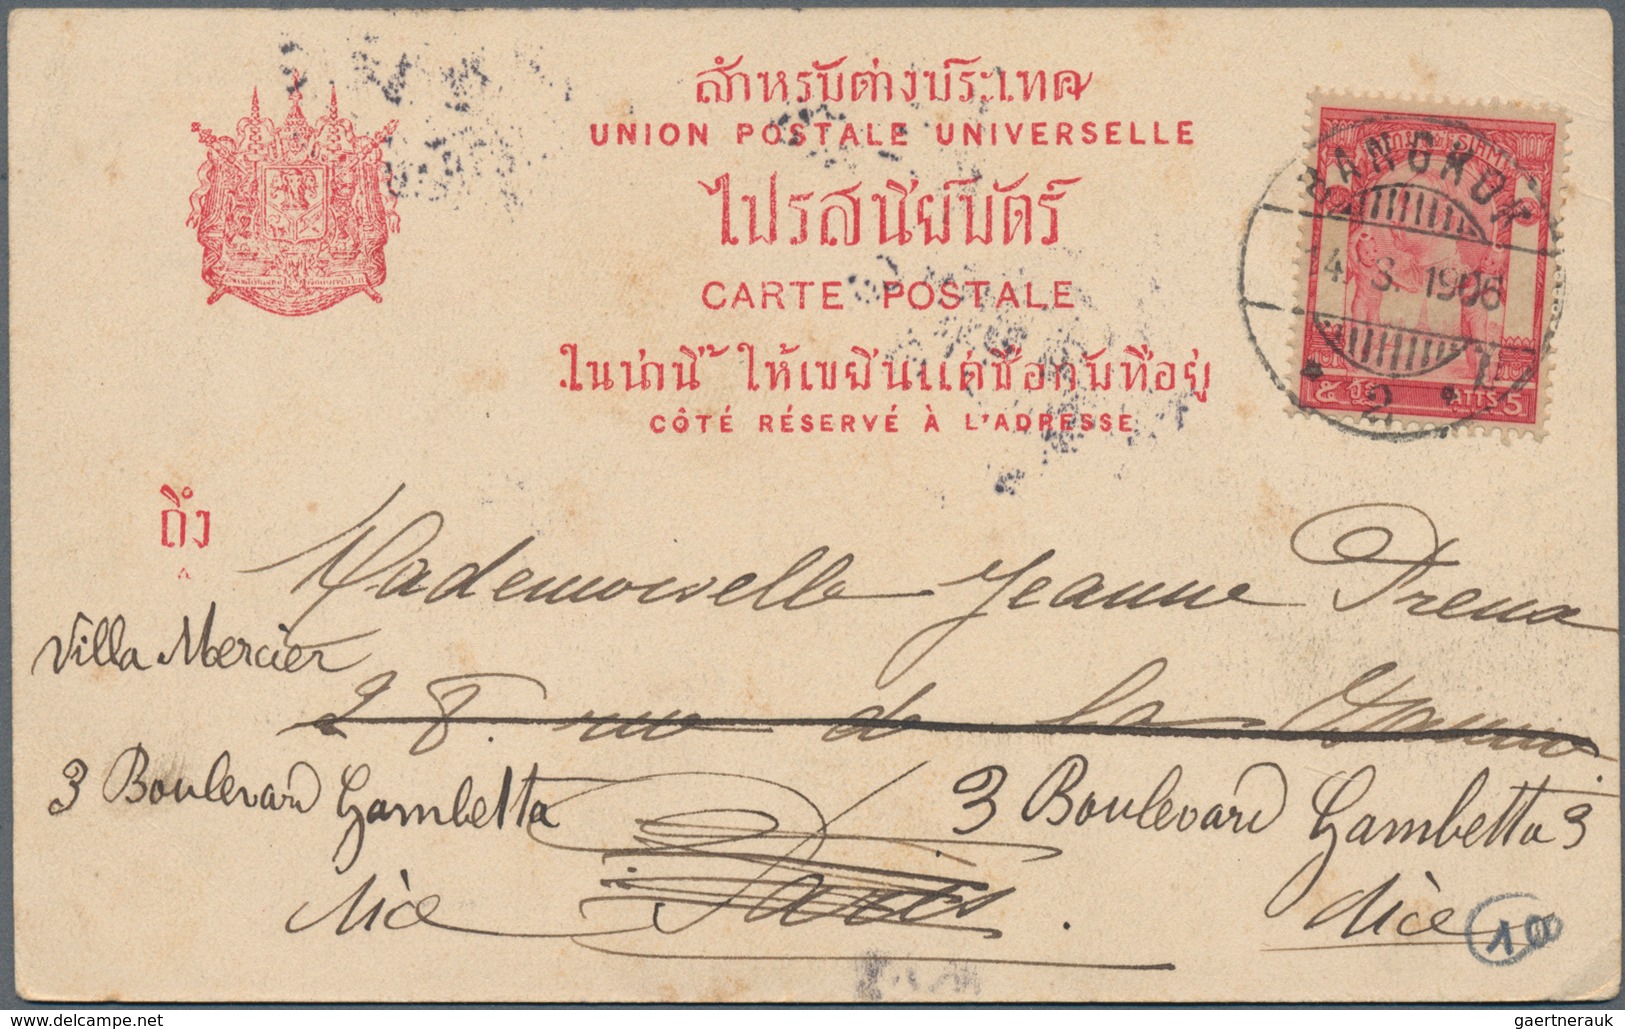 สำหรับต่างประเทศ
UNION POSTALE UNIVERSELLE
ไปรสนียบัตร์
CARTE POSTALE
ในน่านี้ ให้เขียนแต่ชื่อกับที่อยู่
CÔTÉ RÉSERVÉ À L'ADRESSE
BANGKOK
4. 3. 1906
2
ATTS 5
ถึง
Mademoiselle Jeanne Dreux
Villa Mercier
28. rue de la
3 Boulevard Gambetta
3 Boulevard Gambetta 3
Nice
Paris.
Nice
100
gaertnerauk @ delcampe.net